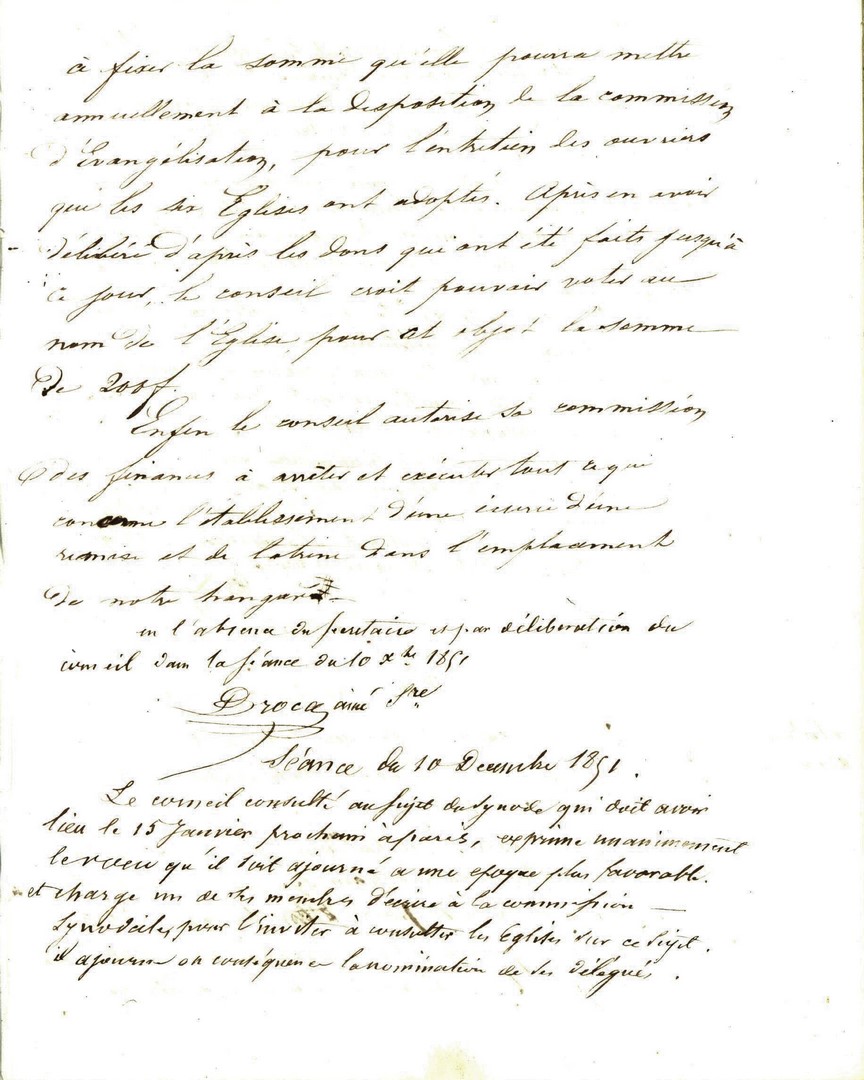 à fixer la somme qu'elle pourra mettre
annuellement à la disposition de la commission
d'Evangélisation, pour l'entretien des ouvriers
que les six Eglises ont adoptés. Après en avoir
délibéré d'après les dons qui ont été faits jusqu'à
ce jour, le conseil croit pouvoir voter au
nom de l'Eglise pour cet objet la somme
de 200f.
Enfin le conseil autorise sa commission
des finances à arrêter et exécuter tout ce qui
concerne l'établissement d'une écurie d'une
remise et de latrine dans l'emplacement
de notre hangar
en l'absence du secretaire et par déliberation du
conseil dans la séance du 10 xbre 1851
Drocq ainé Sre
Séance du 10 Decembre 1851.
Le conseil consulté au sujet du synode qui doit avoir
lieu le 15 Janvier prochain à paris, exprime unanimement
le voeu qu'il soit ajourné a une epoque plus favorable.
et charge un de ses membres d'écrire à la commission
synodale, pour l'inviter à consulter les Eglises sur ce sujet.
il ajourne en conséquence la nomination de ses délégués.